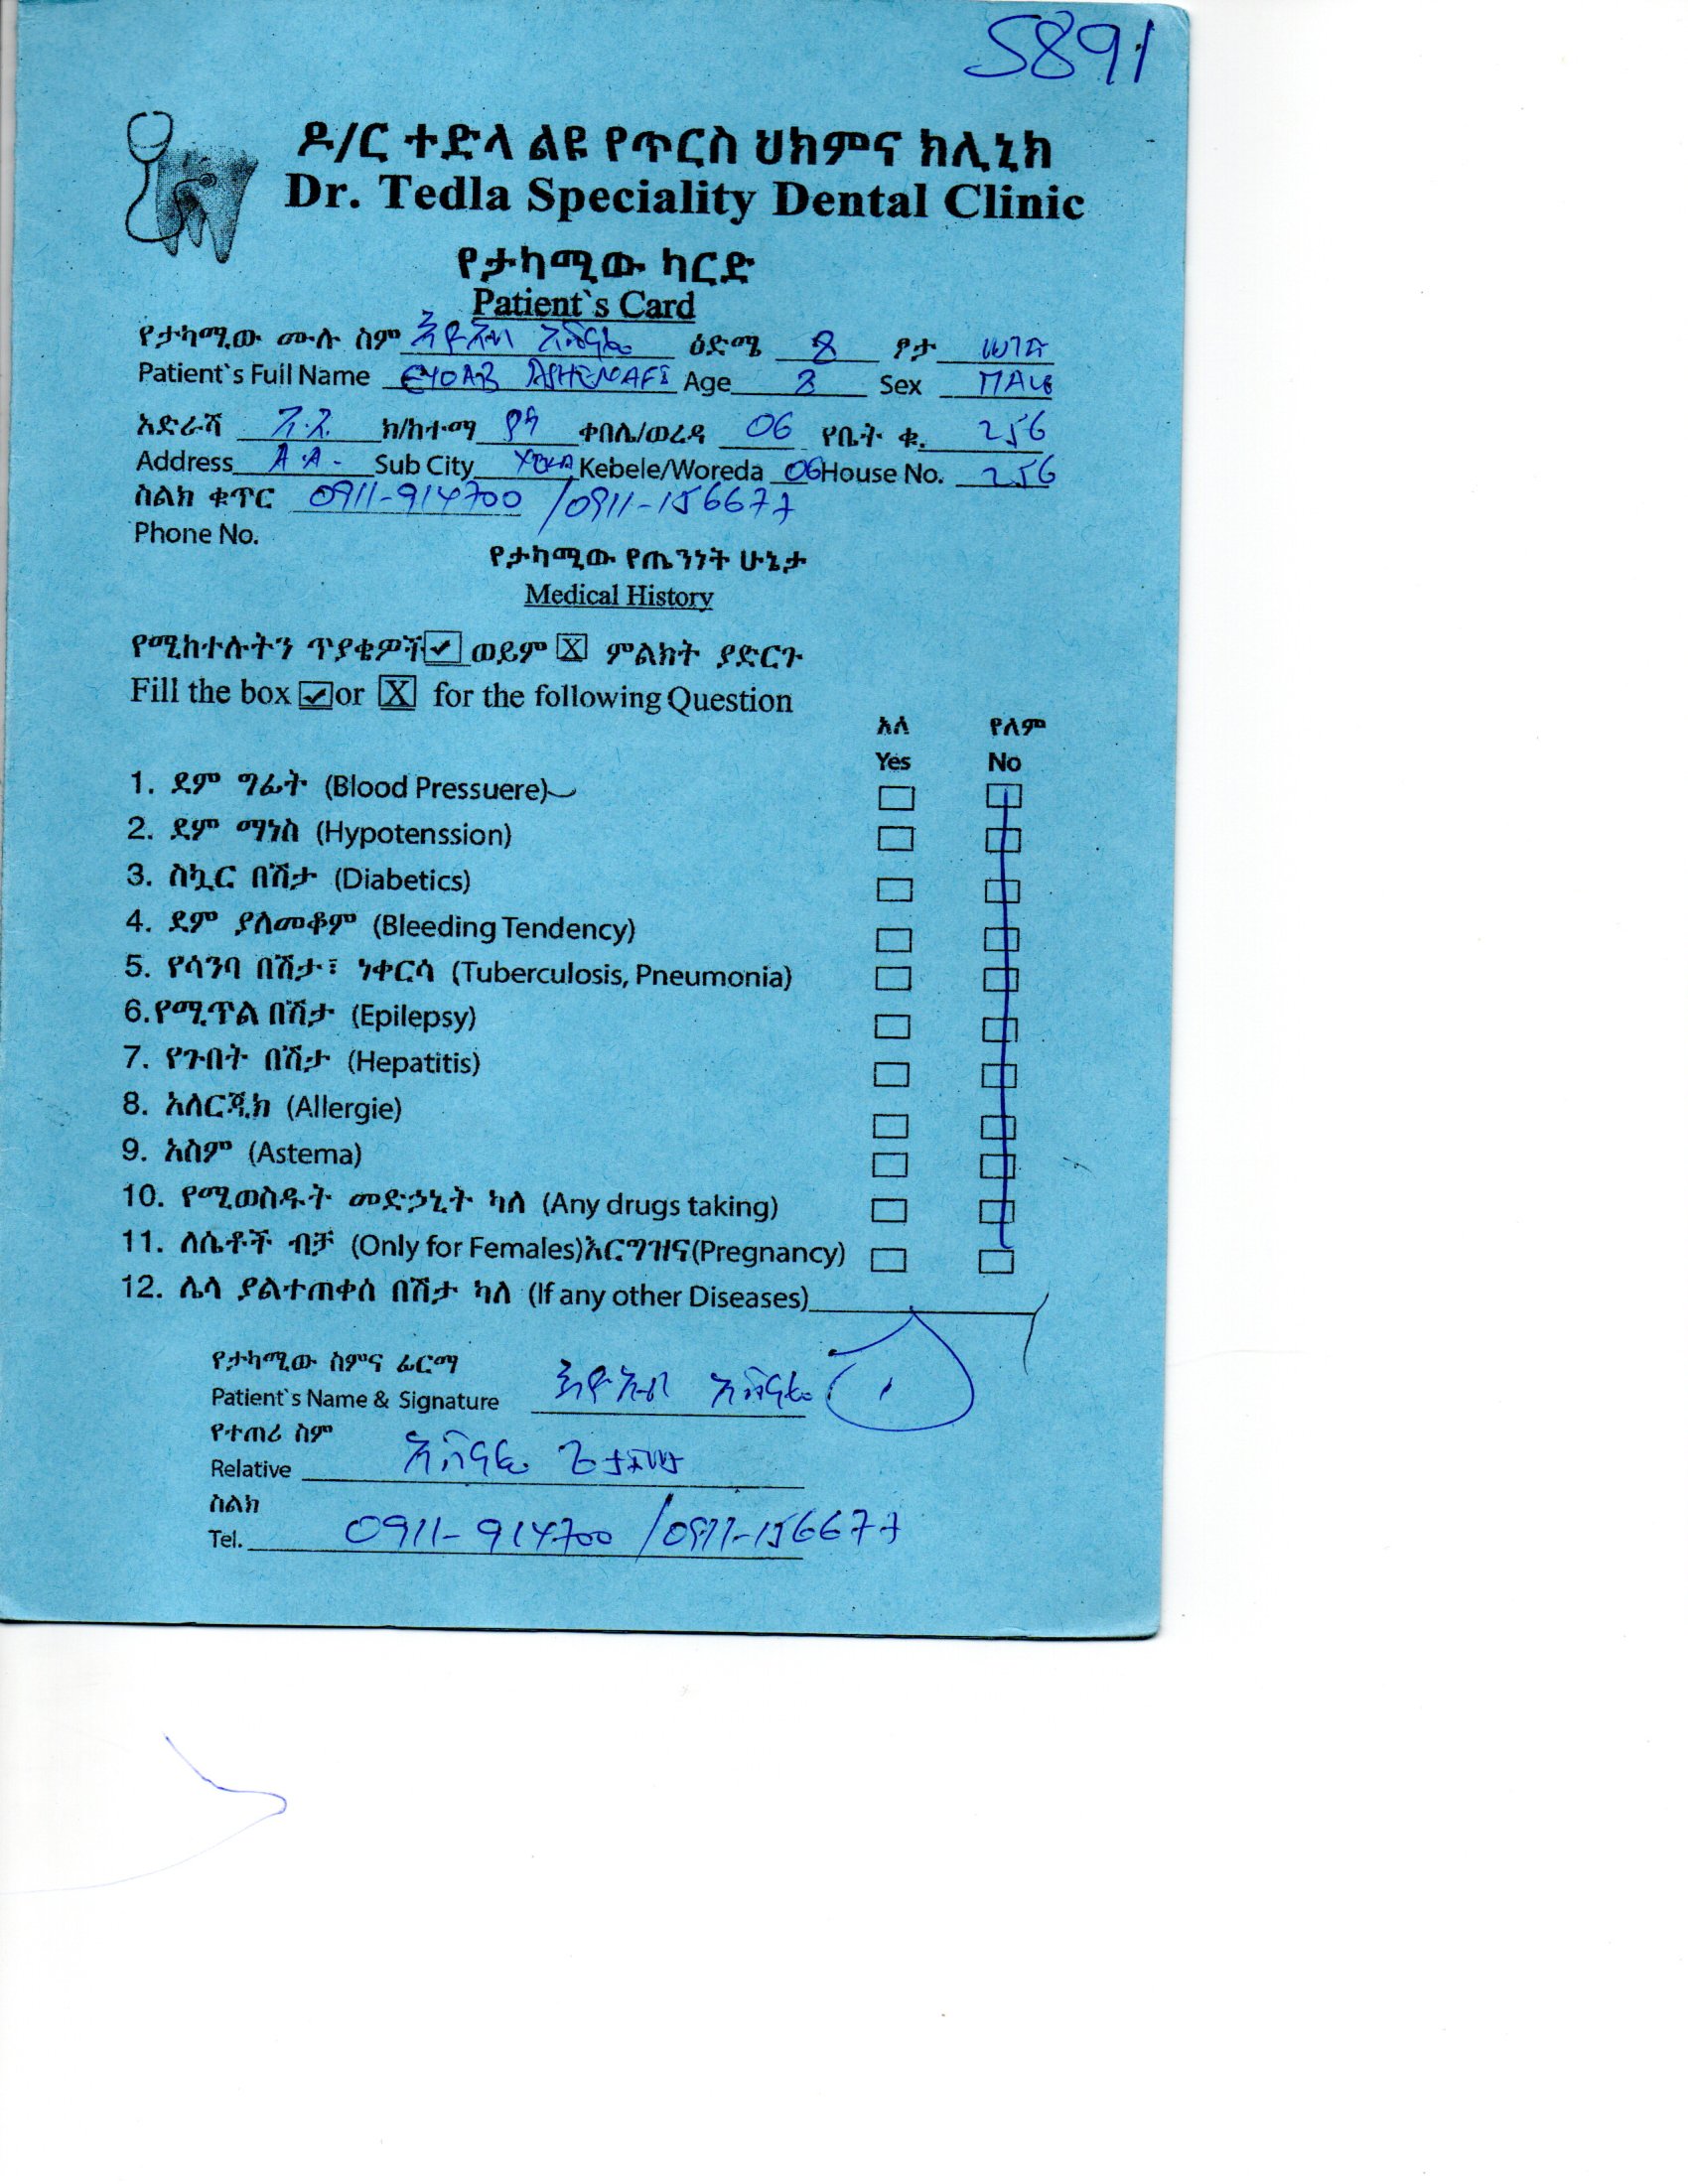 5891
ዶ/ር ተድላ ልዩ የጥርስ ህክምና ክሊኒክ
Dr. Tedla Speciality Dental Clinic
የታካሚው ካርድ
Patient`s Card
የታካሚው ሙሉ ስም እዮአብ አሸናፊ ዕድሜ 8 ፆታ ወንድ
Patient`s Full Name EYOAB ASHENAFI Age 8 Sex MALE
አድራሻ አ.አ. ክ/ከተማ የካ ቀበሌ/ወረዳ 06 የቤት ቁ. 256
Address A.A. Sub City YEKA Kebele/Woreda 06 House No. 256
ስልክ ቁጥር 0911-914700 /0911-156677
Phone No.
የታካሚው የጤንነት ሁኔታ
Medical History
የሚከተሉትን ጥያቄዎች ✓ ወይም X ምልክት ያድርጉ
Fill the box ✓ or X for the following Question
አለ የለም
Yes No
1. ደም ግፊት (Blood Pressuere)
2. ደም ማነስ (Hypotenssion)
3. ስኳር በሽታ (Diabetics)
4. ደም ያለመቆም (Bleeding Tendency)
5. የሳንባ በሽታ፣ ነቀርሳ (Tuberculosis, Pneumonia)
6.የሚጥል በሽታ (Epilepsy)
7. የጉበት በሽታ (Hepatitis)
8. አለርጂክ (Allergie)
9. አስም (Astema)
10. የሚወስዱት መድኃኒት ካለ (Any drugs taking)
11. ለሴቶች ብቻ (Only for Females)እርግዝና(Pregnancy)
12. ሌላ ያልተጠቀሰ በሽታ ካለ (If any other Diseases)
የታካሚው ስምና ፊርማ
Patient`s Name & Signature እዮአብ አሸናፊ
የተጠሪ ስም
Relative አሸናፊ ጌታቸው
ስልክ
Tel. 0911-914700 /0911-156677